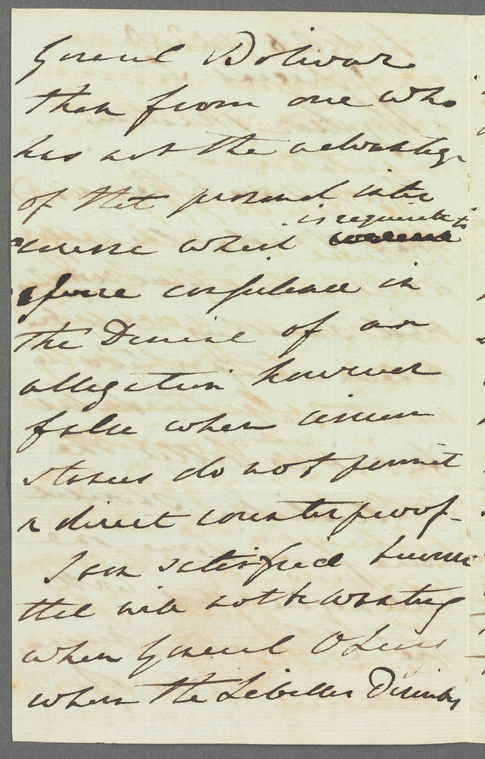 General Bolivar
than from one who
has not the advantage
of that personal inter
is requisite to
course which
confidence in
the Denial of an
allegation however
false when circum
stances do not permit
a direct counterproof –
I am satisfied however
that will not be wanting
when General O'Leary
whom the Libeller